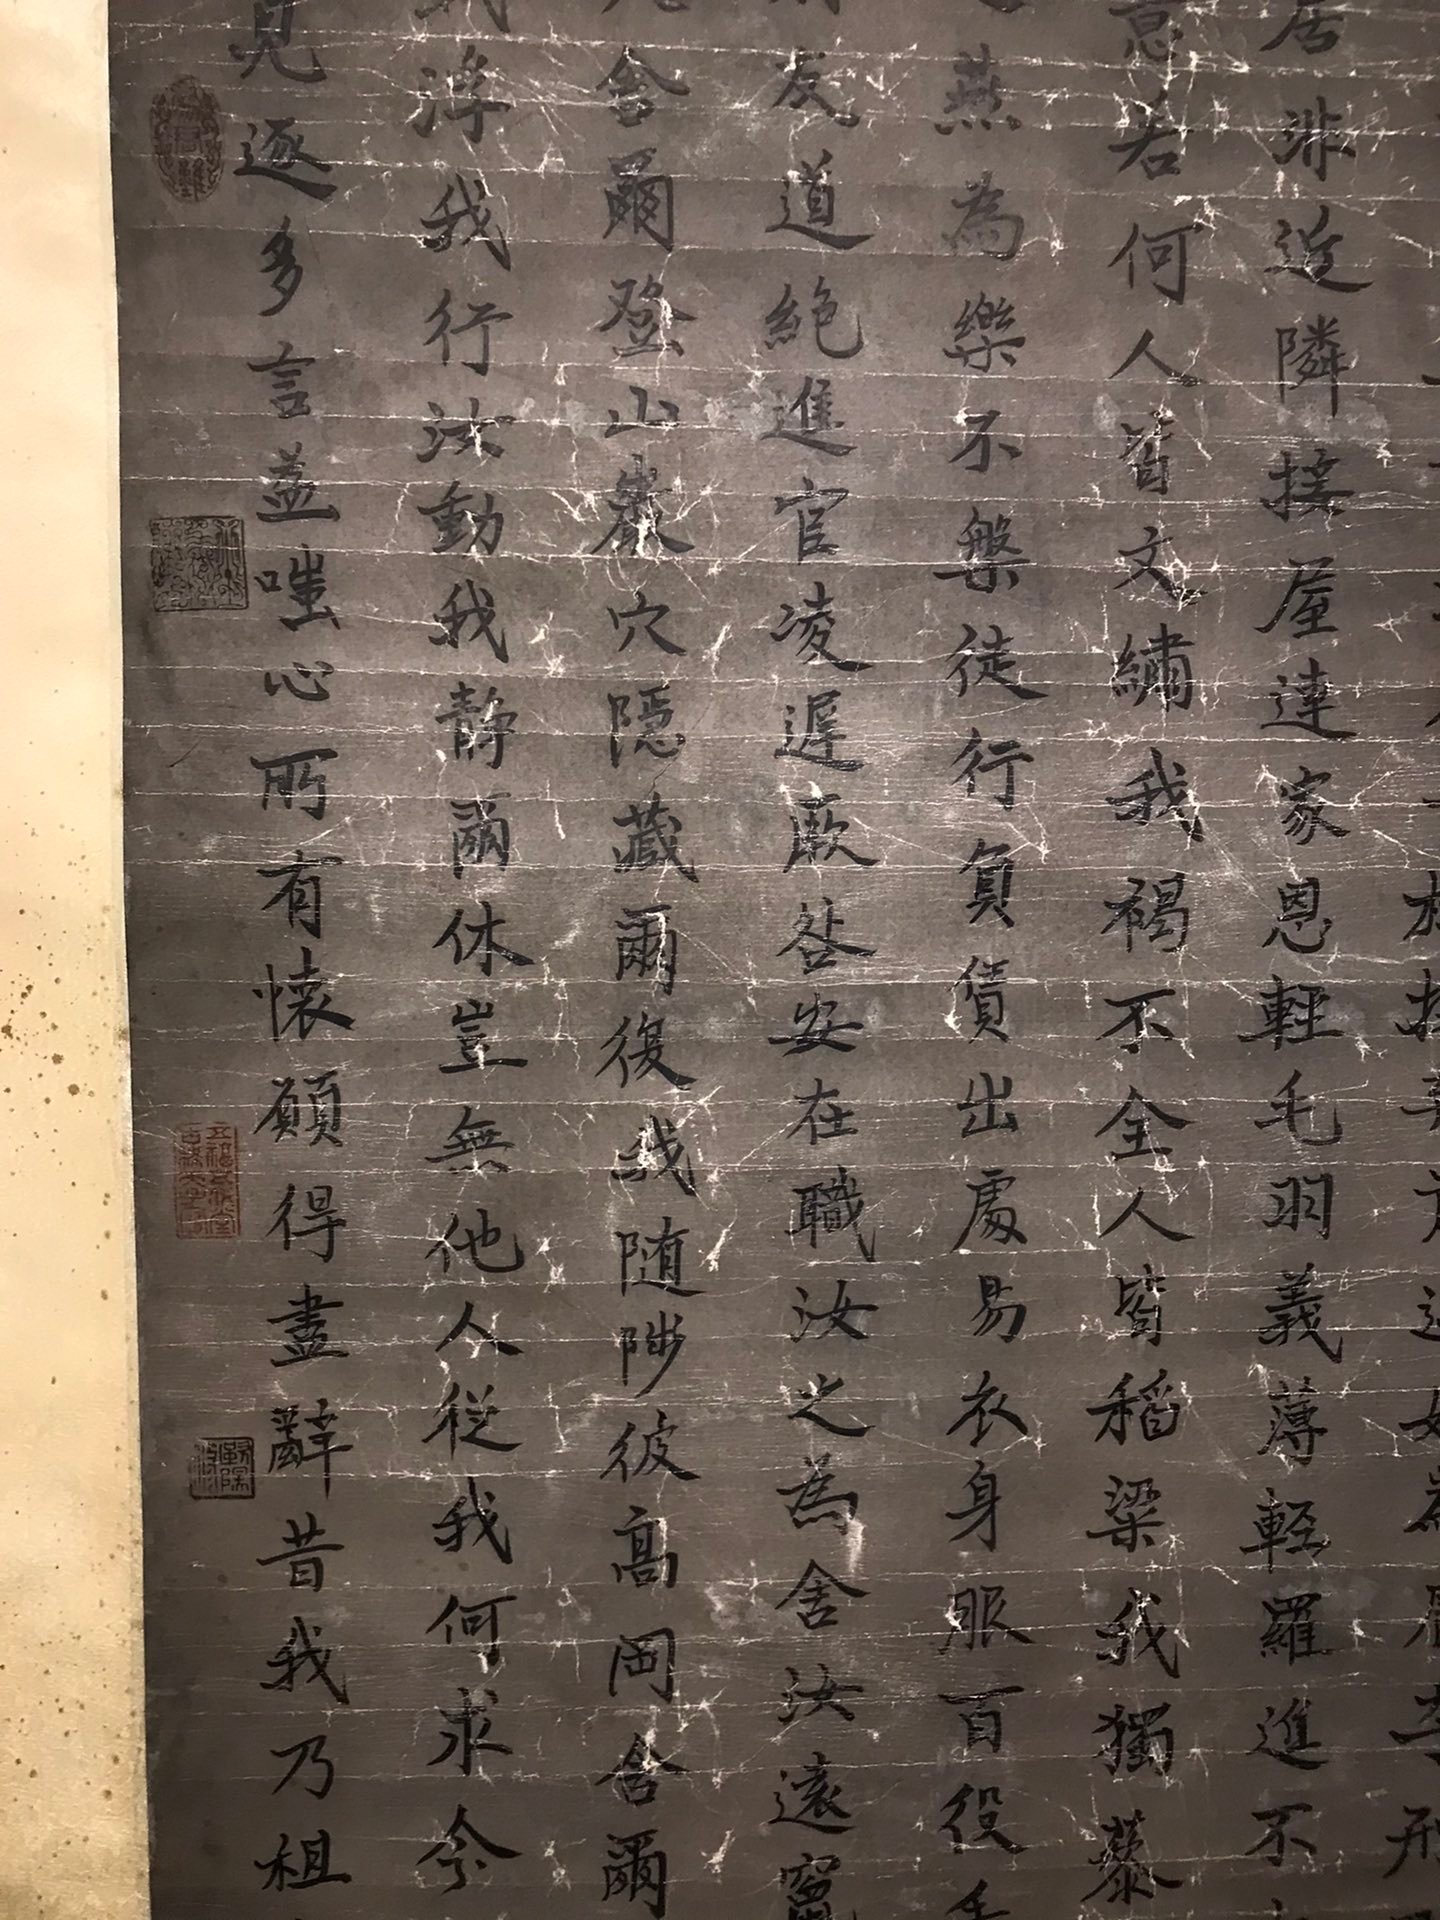 居非近隣接屋連家恩輕毛羽義薄輕羅進不
意若何人皆文繡我褐不全人皆稻粱我獨藜
燕為樂不槃徒行負賃出處易衣身服百役
友道絕進官凌遲厥咎安在職汝之為舍汝遠竄
舍爾登山巖穴隱藏爾復我随陟彼高岡舍爾
我浮我行汝動我靜爾休豈無他人從我何求今
見逐多言益嗤心所有懷願得盡辭昔我乃祖
五福五代堂古稀天子寶